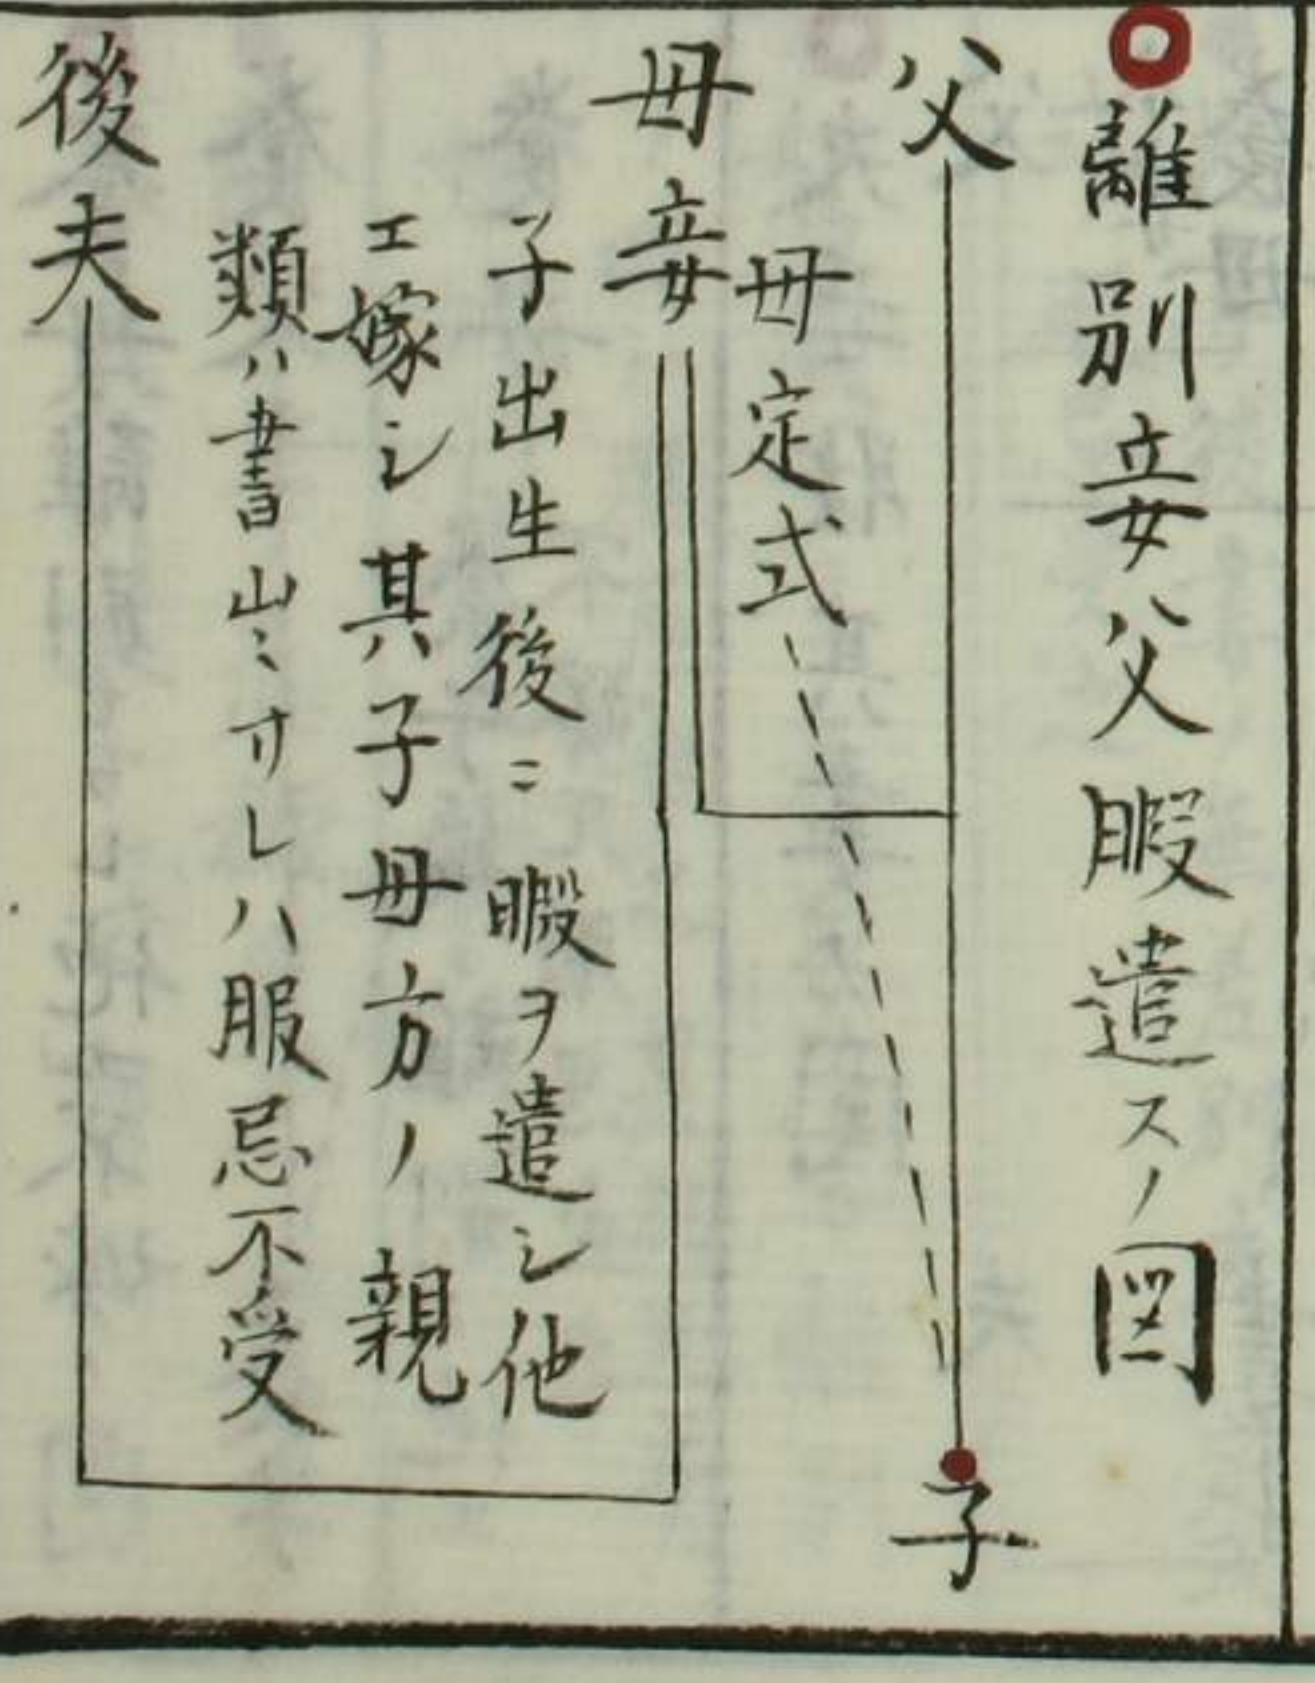 離別妾父暇遣スノ図
父
子
母定式
母妾
子出生後ニ暇ヲ遣シ他
エ嫁シ其子母方ノ親
類ハ書出ニナレハ服忌不受
後夫